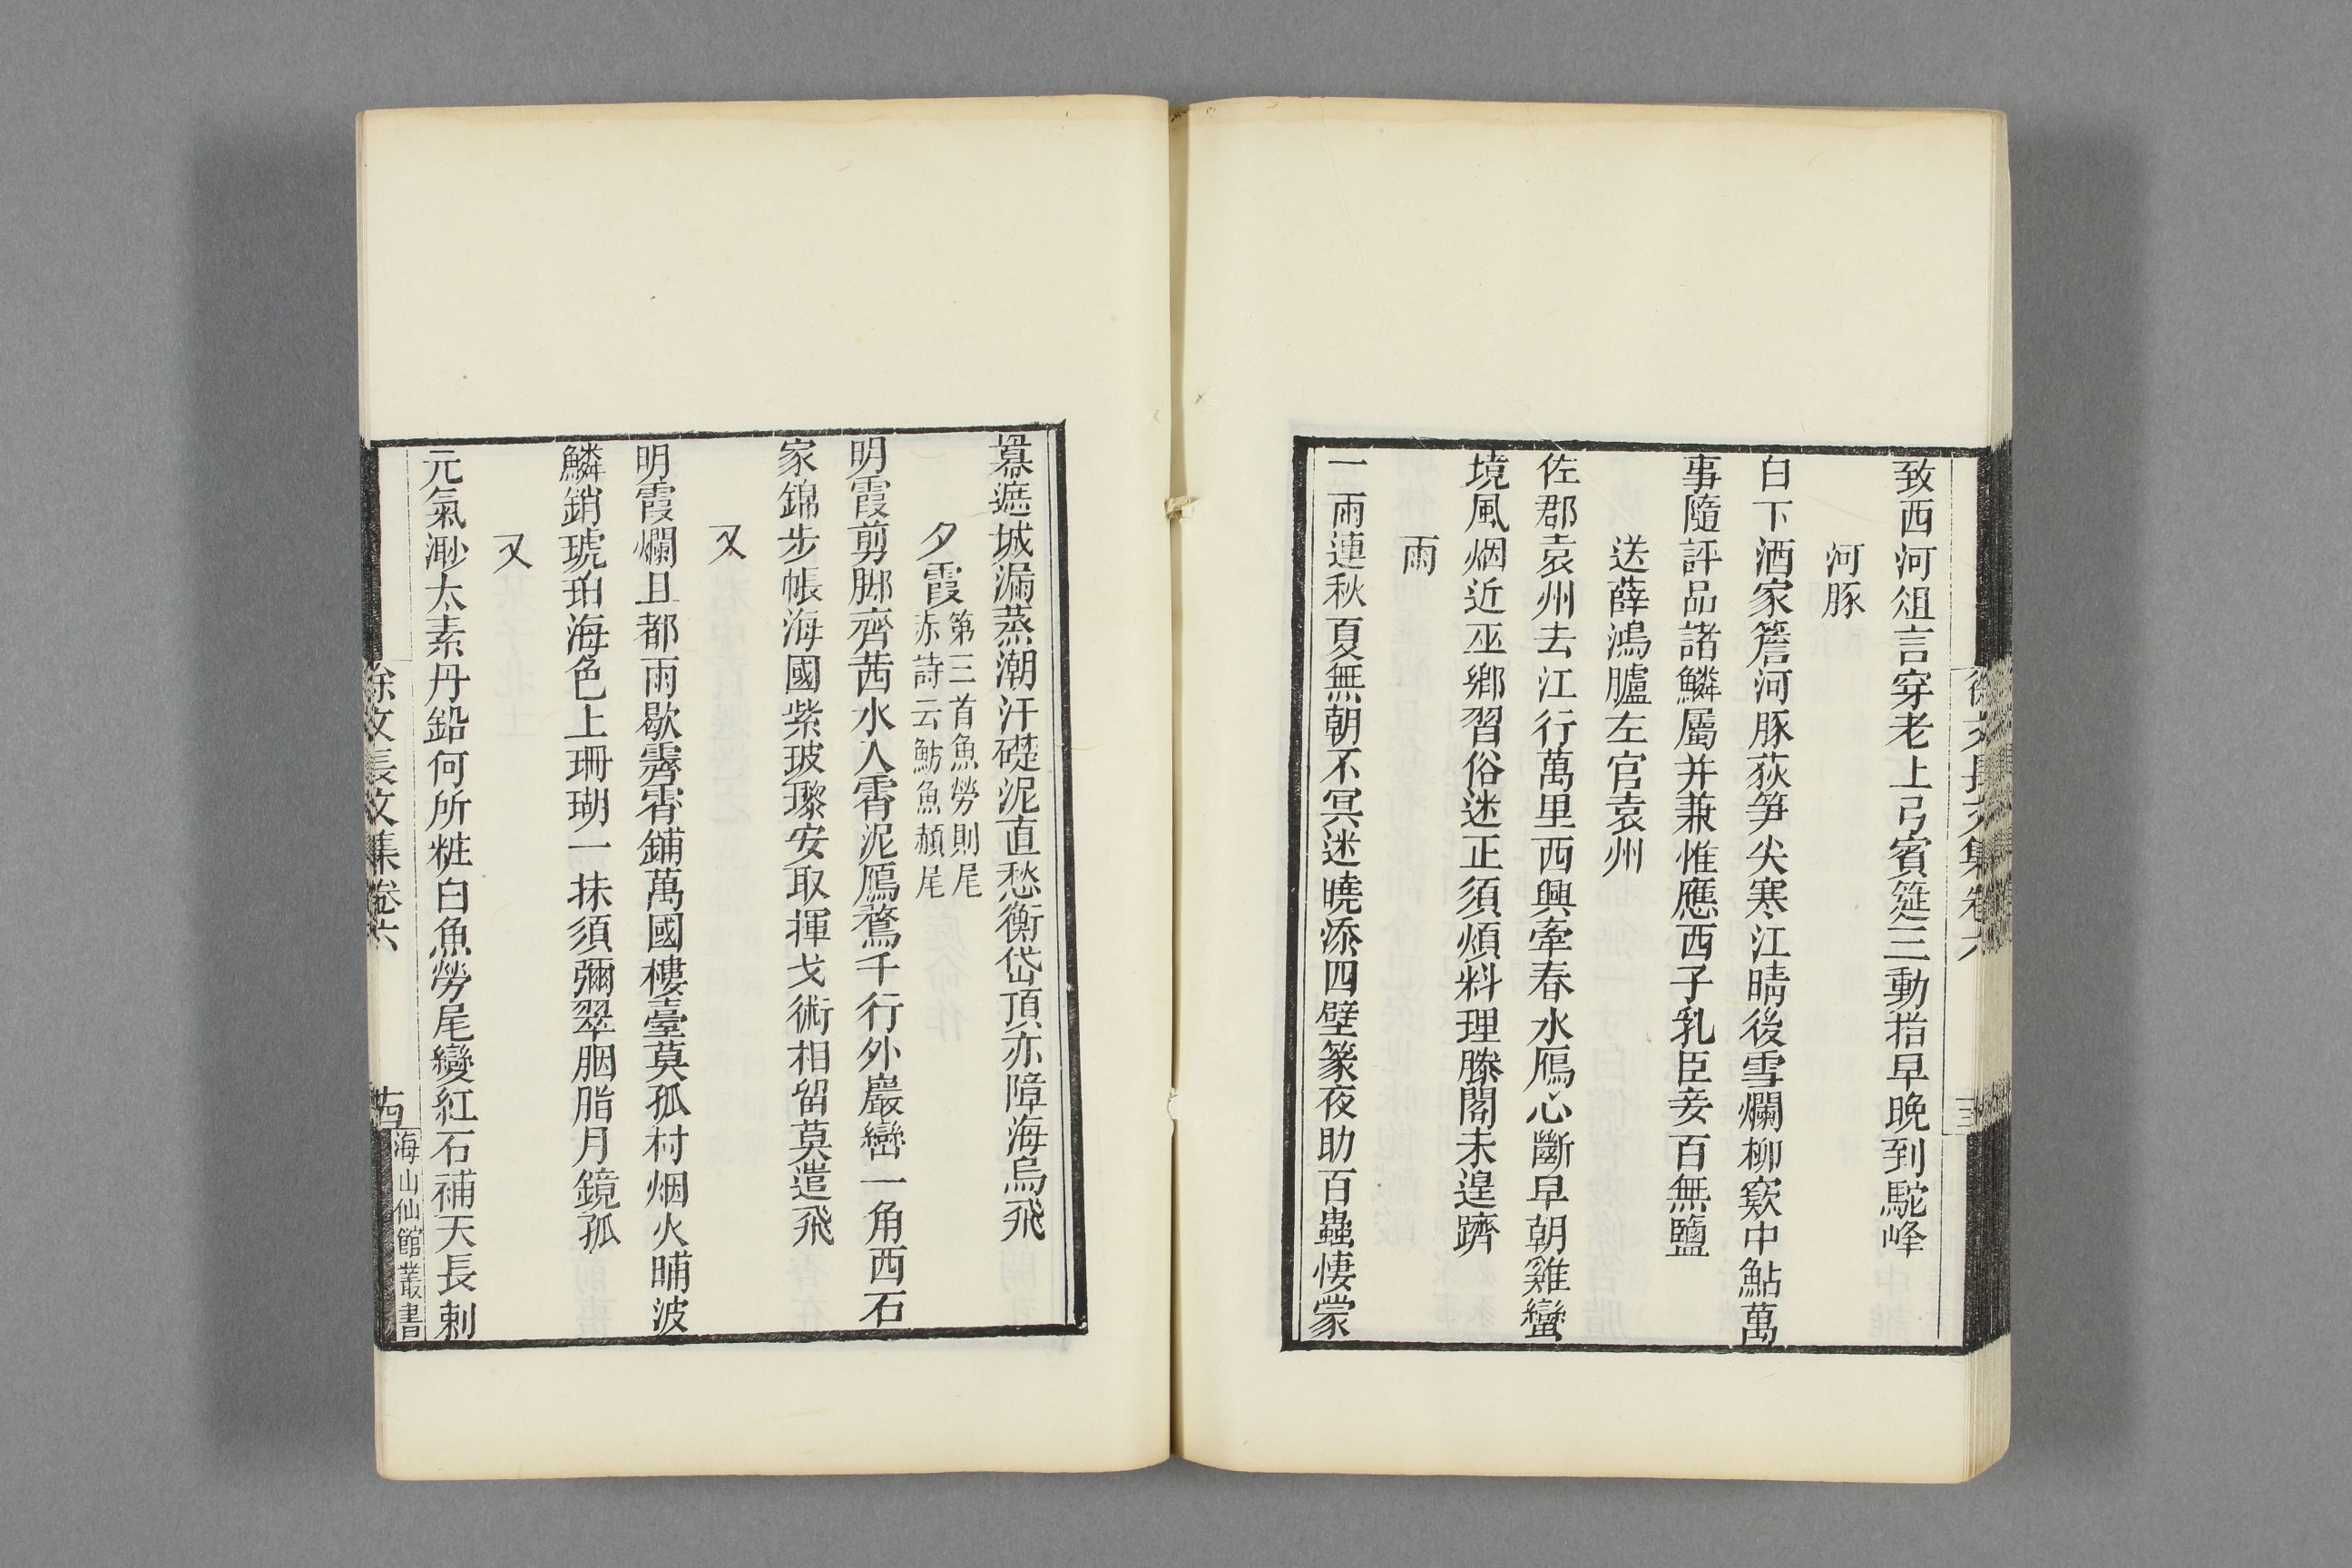 致西河俎言穿老上弓賓筵三動指早晚到駝峰
河豚
白下酒家簷河豚荻笋尖寒江晴後雪爛柳窾中鮎萬
事隨評品諸鱗屬并兼惟應西子乳臣妾百無鹽
送薛鴻臚左官袁州
佐郡袁州去江行萬里西興牽春水鴈心斷早朝雞蠻
境風烟近巫鄉習俗迷正須煩料理滕閣未遑躋
雨
一雨連秋夏無朝不冥迷曉添四壁篆夜助百蟲悽蒙
羃遮城漏蒸潮汗礎泥直愁衡岱頂亦障海烏飛
夕霞第三首魚勞則尾
赤詩云魴魚赬尾
明霞剪脚齊茜水入霄泥鴈鶩千行外巖巒一角西石
家錦步帳海國紫玻瓈安取揮戈術相留莫遣飛
又
明霞爛且都雨歇霽霄鋪萬國樓臺莫孤村烟火晡波
鱗銷琥珀海色上珊瑚一抹須彌翠胭脂月鏡孤
又
元氣渺太素丹鉛何所粧白魚勞尾變紅石補天長剌
徐文長文集卷六
海山仙館叢書